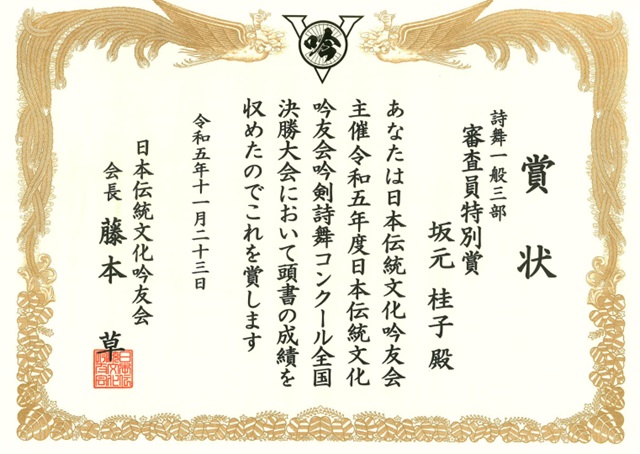 吟
賞状
詩舞一般三部
審査員特別賞
坂元桂子殿
あなたは日本伝統文化吟友会
主催令和五年度日本伝統文化
吟友会吟剣詩舞コンクール全国
決勝大会において頭書の成績を
収めたのでこれを賞します
令和五年十一月二十三日
日本伝統文化吟友会
会長 藤本草